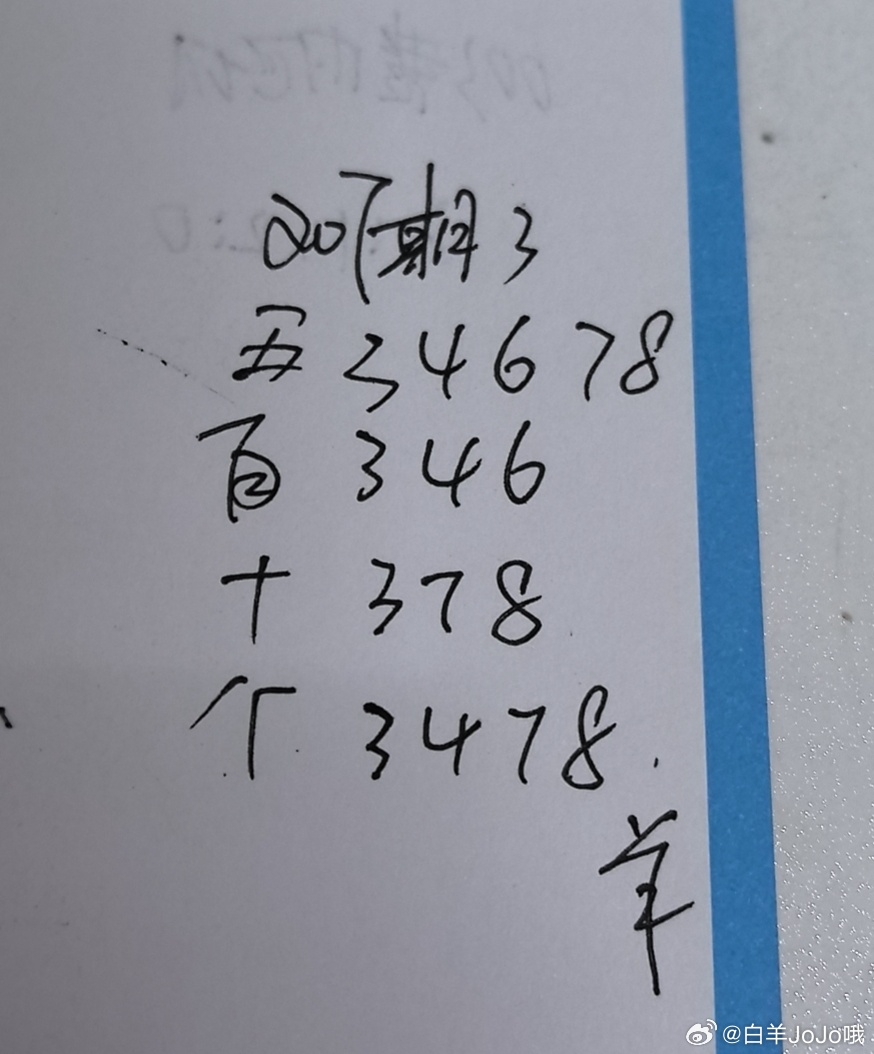 207期 3
五 34678
百 346
十 378
个 3478.
羊
@白羊JoJo哦